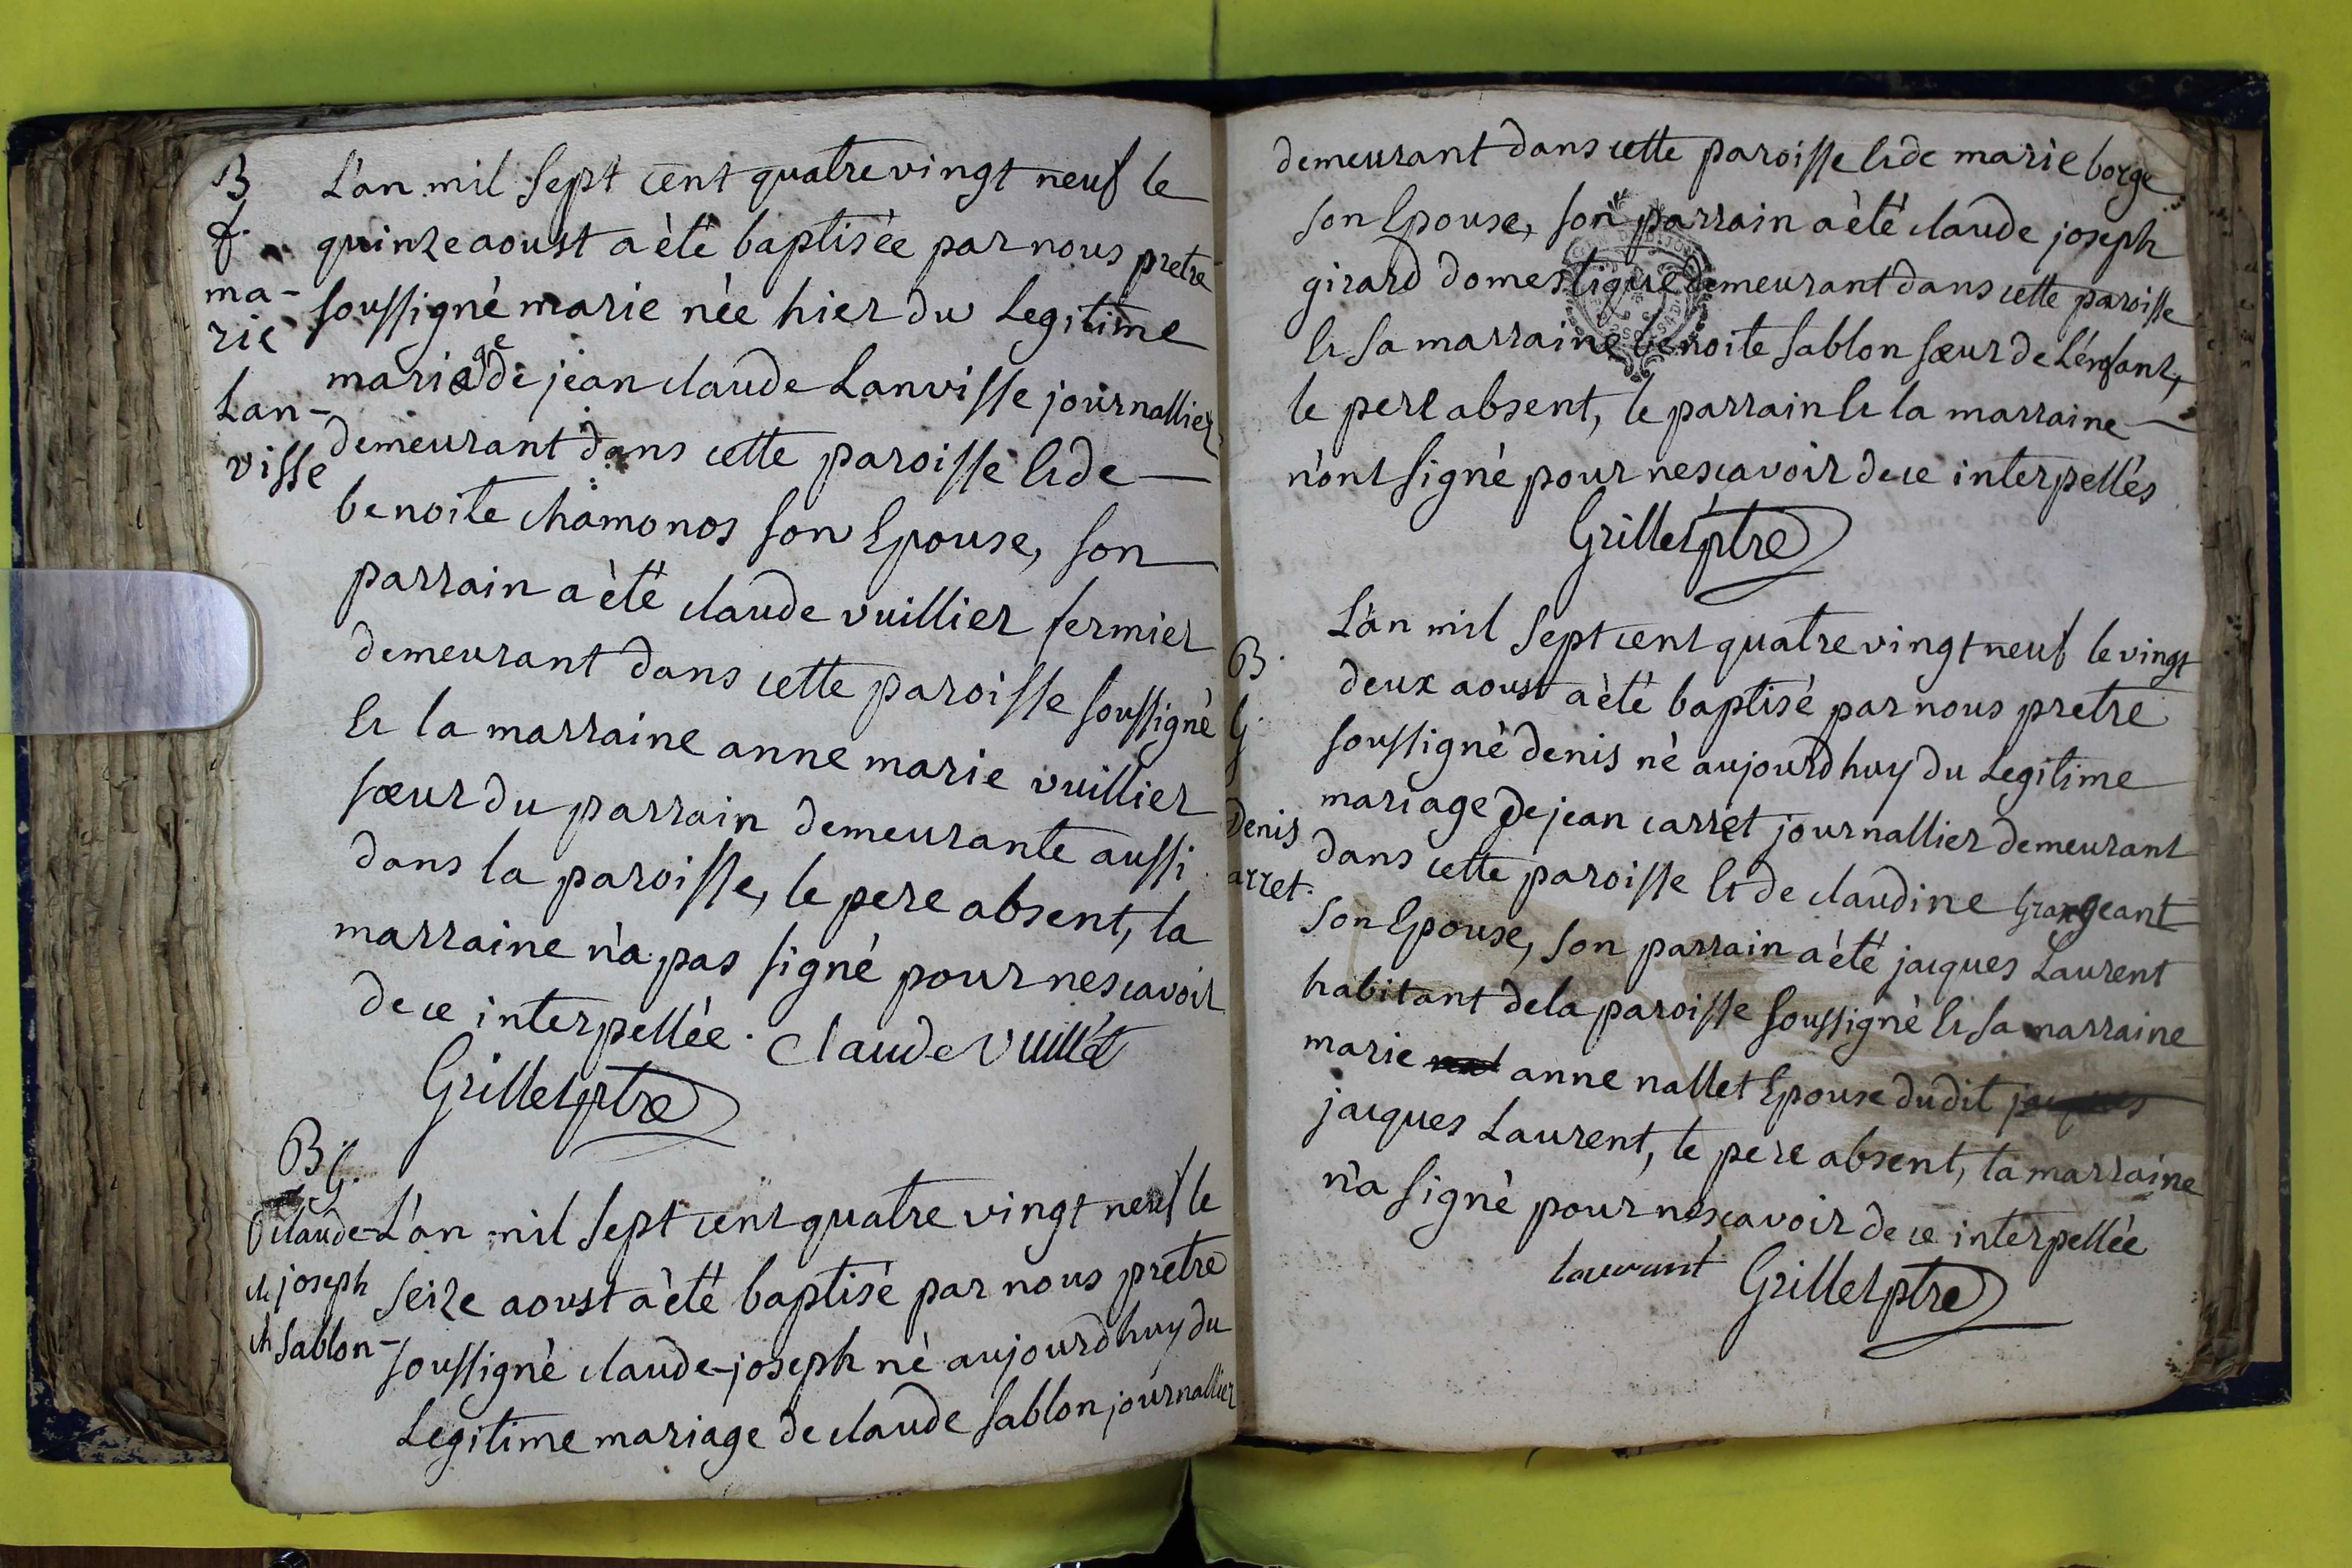 B
f.
ma-
rie
Lan-
visse
L'an mil sept cent quatre vingt neuf le
quinze aoust a èté baptisée par nous pretre
soussigné marie née hier du Legitime
mariage de jean claude Lanvisse journallier
demeurant dans cette paroisse et de
benoite chamonos son Epouse, son
parrain a èté claude vuillier fermier
demeurant dans cette paroisse soussigné
et la marraine anne marie vuillier
sœur du parrain demeurante aussi
dans la paroisse, le pere absent, la
marraine n'a pas signé pour ne scavoir
de ce interpellée. Claude Vuillet
Grillet ptre
B. G.
claude
joseph
Sablon
L'an mil sept cent quatre vingt neuf le
seize aoust a èté baptisé par nous pretre
soussigné claude-joseph né aujourdhuy du
Legitime mariage de claude Sablon journallier
demeurant dans cette paroisse et de marie borge
son Epouse, son parrain a èté claude joseph
girard domestique demeurant dans cette paroisse
et sa marraine benoite Sablon sœur de L'énfant,
le pere absent, le parrain et la marraine
n'ont signé pour ne scavoir de ce interpellés
Grillet ptre
B.
G.
Denis
arret.
L'an mil sept cent quatre vingt neuf le vingt
deux aoust a èté baptisé par nous pretre
soussigné denis né aujourdhuy du Legitime
mariage de jean carret journallier demeurant
dans cette paroisse et de claudine Grangeant
son Epouse, son parrain a èté jacques Laurent
habitant de la paroisse soussigné et sa marraine
marie anne nallet Epouse dudit jacques
jacques Laurent, le pere absent, la marraine
n'a signé pour ne scavoir de ce interpellée
Laurant Grillet ptre